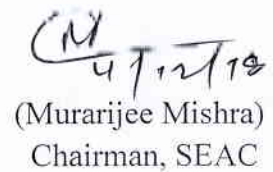 4/12/18
(Murarijee Mishra)
Chairman, SEAC